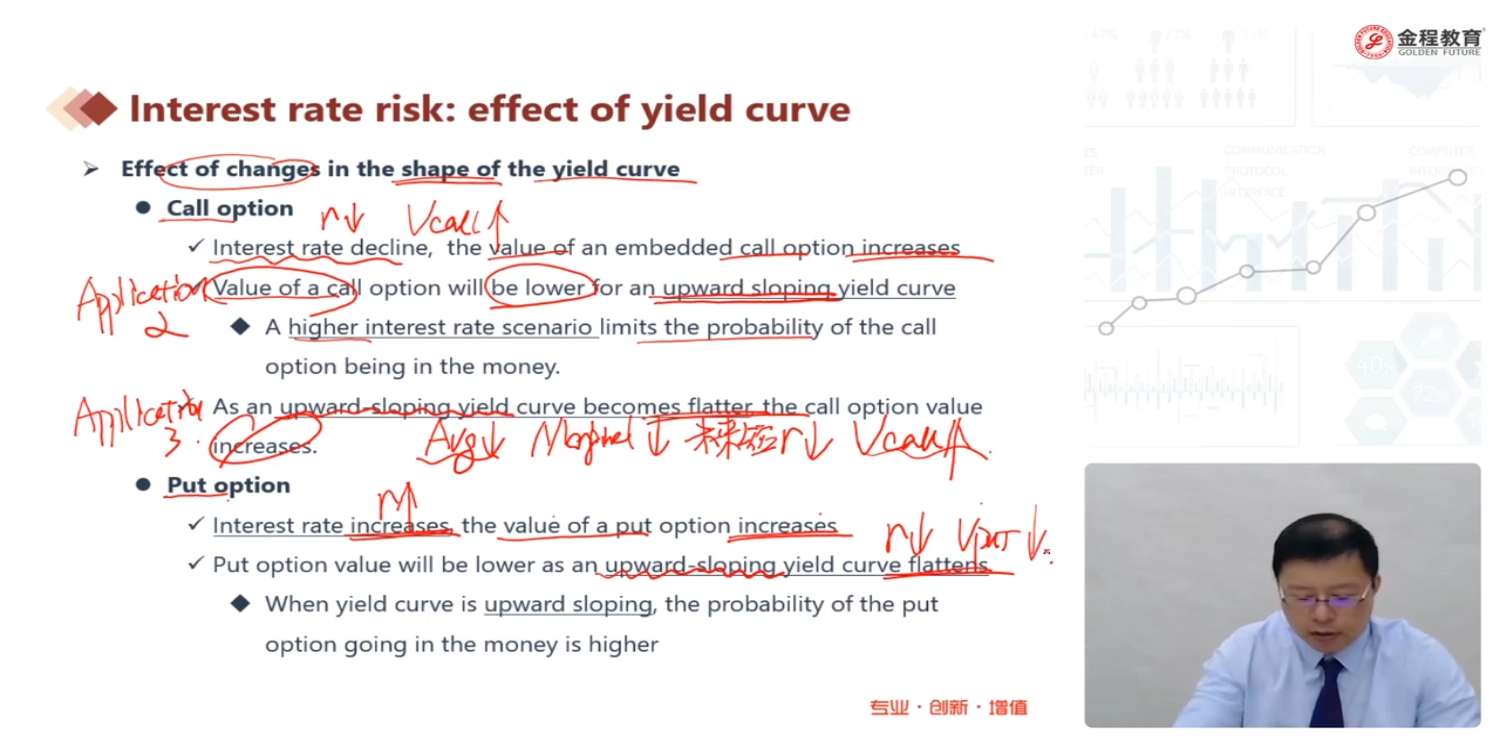 金程教育
GOLDEN FUTURE
Interest rate risk: effect of yield curve
Effect of changes in the shape of the yield curve
Call option
r↓ Vcall↑
Interest rate decline, the value of an embedded call option increases
Application 2
Value of a call option will be lower for an upward sloping yield curve
A higher interest rate scenario limits the probability of the call
option being in the money.
Application 3.
As an upward-sloping yield curve becomes flatter, the call option value
increases.
Avg↓ Marginal↓ 未来短r↓ Vcall↑
Put option
r↑
Interest rate increases, the value of a put option increases
r↓ Vput↓
Put option value will be lower as an upward-sloping yield curve flattens.
When yield curve is upward sloping, the probability of the put
option going in the money is higher
专业·创新·增值
COMMUNICATION
PROTOCOL
INTERFACE
40%